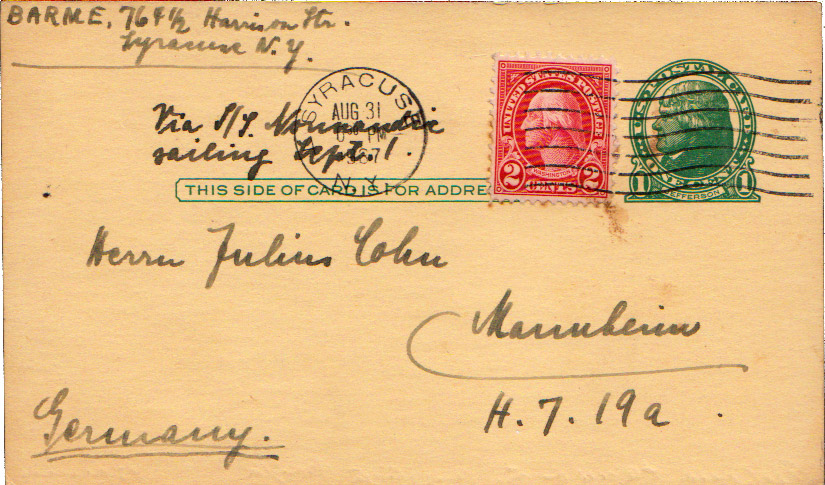 BARME, 769 1/2 Harrison Str.
Syracuse N.Y.
Via S/S. Normandie
sailing Sept. 1.
SYRACUSE
AUG 31
PM
1937
N.Y.
UNITED STATES POSTAGE
WASHINGTON
2 CENTS 2
U.S. POSTAL CARD
1 JEFFERSON 1
THIS SIDE OF CARD IS FOR ADDRE
Herrn Julius Cohn
Mannheim
H. 7. 19a.
Germany.